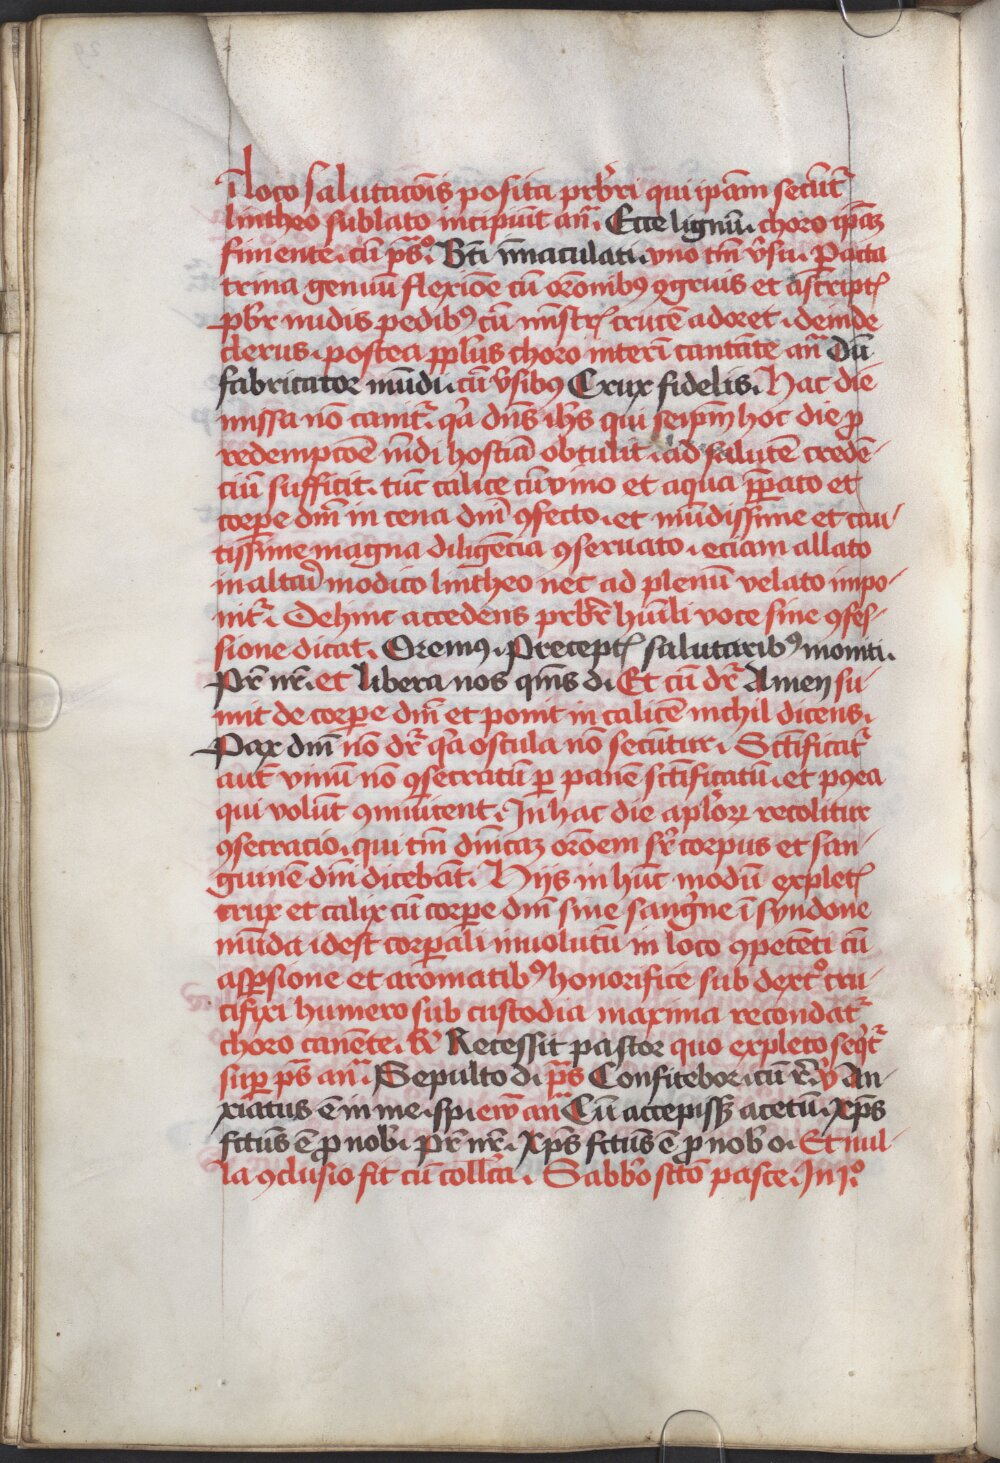 ī loco salutacōis posita prb̄ri qui ip̄am secūt᷑
lintheo sublato incipiūt an̄. Ecce lignū. choro ip̄aꝫ
finiente. cū ps̄º. Bt̄i īmaculati. vno tm̄ v̄su. Pacta
trina genuū flexiōe cū orōnibꝰ ꝯgruis et ascriptꝭ
pb̄r nudis pedibꝰ cū mīstrꝭ crucē adoret. deinde
clerus. postea pp̄lus choro interī cantāte an̄ Dū
fabricator mūdi. cū v̄sibꝰ Crux fidelis. Hac die
missa nō canit᷑. qͣ dn̄s ih̄s qui seip̄m hoc die ꝓ
redempcōe mūdi hostiā obtulit. ad salutē credē-
ciū sufficit. tūc calice cū vino et aqua p̄parato et
corꝑe dn̄i in cena dn̄i ꝯfecto. et mūdissime et cau-
tissime magna diligēcia ꝯseruato. eciam allato
in altari modico lintheo nec ad plenū velato impo-
nit᷑. Dehinc accedens prb̄r hūili voce sine ꝯfes-
sione dicat. Oremꝰ. Preceptꝭ salutaribꝰ moniti.
Pr̄ nr̄. et libera nos qm̄s di Et cū dr̄ Amen su-
mit de corꝑe dn̄i et ponit in calicē nichil dicens.
Pax dn̄i nō dr̄ qͣ oscula nō secūtur. Sct̄ificat᷑
aut̄ vinū nō ꝯsecratū ꝑ panē sct̄ificatū. et pꝰea
qui volūt ꝯmūicent. In hac die apl̄oꝝ recolitur
ꝯsecracio. qui tm̄ dn̄icaꝫ orōem sr̄ corpus et san-
guinē dn̄i dicebāt. Hijs in hūc modū expletꝭ
crux et calix cū corꝑe dn̄i sine sangͥne ī syndone
mūda idest corꝑali inuolutū in loco ꝯpetēti cū
asꝑsione et aromatibꝰ honorifice sub dextº cru-
cifixi humero sub custodia maxima recondat᷑
choro canēte. ℟ Recessit pastor quo expleto seqͥt᷑
suꝑ ps̄ an̄. Sepulto di. ps̄ Confitebor. cū r̄. v̄ An-
xiatus ē in me. spi ew̄ an̄ Cū accepissꝫ acetū. Xp̄s
fctūs ē ꝓ nob̄. Pr̄ nr̄. Xp̄s fctūs ē ꝓ nob̄ o. Et nul-
la ꝯclusio fit cū coll̄ca. Sabb̄o sctō pasce. In jº.